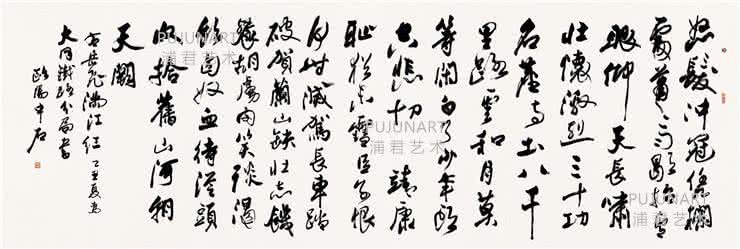 怒髮沖冠憑欄
處瀟瀟雨歇抬望
眼仰天長嘯
壯懷激烈三十功
名塵與土八千
里路雲和月莫
等閒白了少年頭
空悲切 靖康
恥猶未雪臣子恨
何時滅駕長車踏
破賀蘭山缺壯志飢
餐胡虜肉笑談渴
飲匈奴血待從頭
收拾舊山河朝
天闕
岳飛滿江紅 乙丑夏為
大同 分局書
歐陽中石
PUJUNART
浦君艺术
PUJUNART
浦君艺术
PUJUNART
浦君艺术